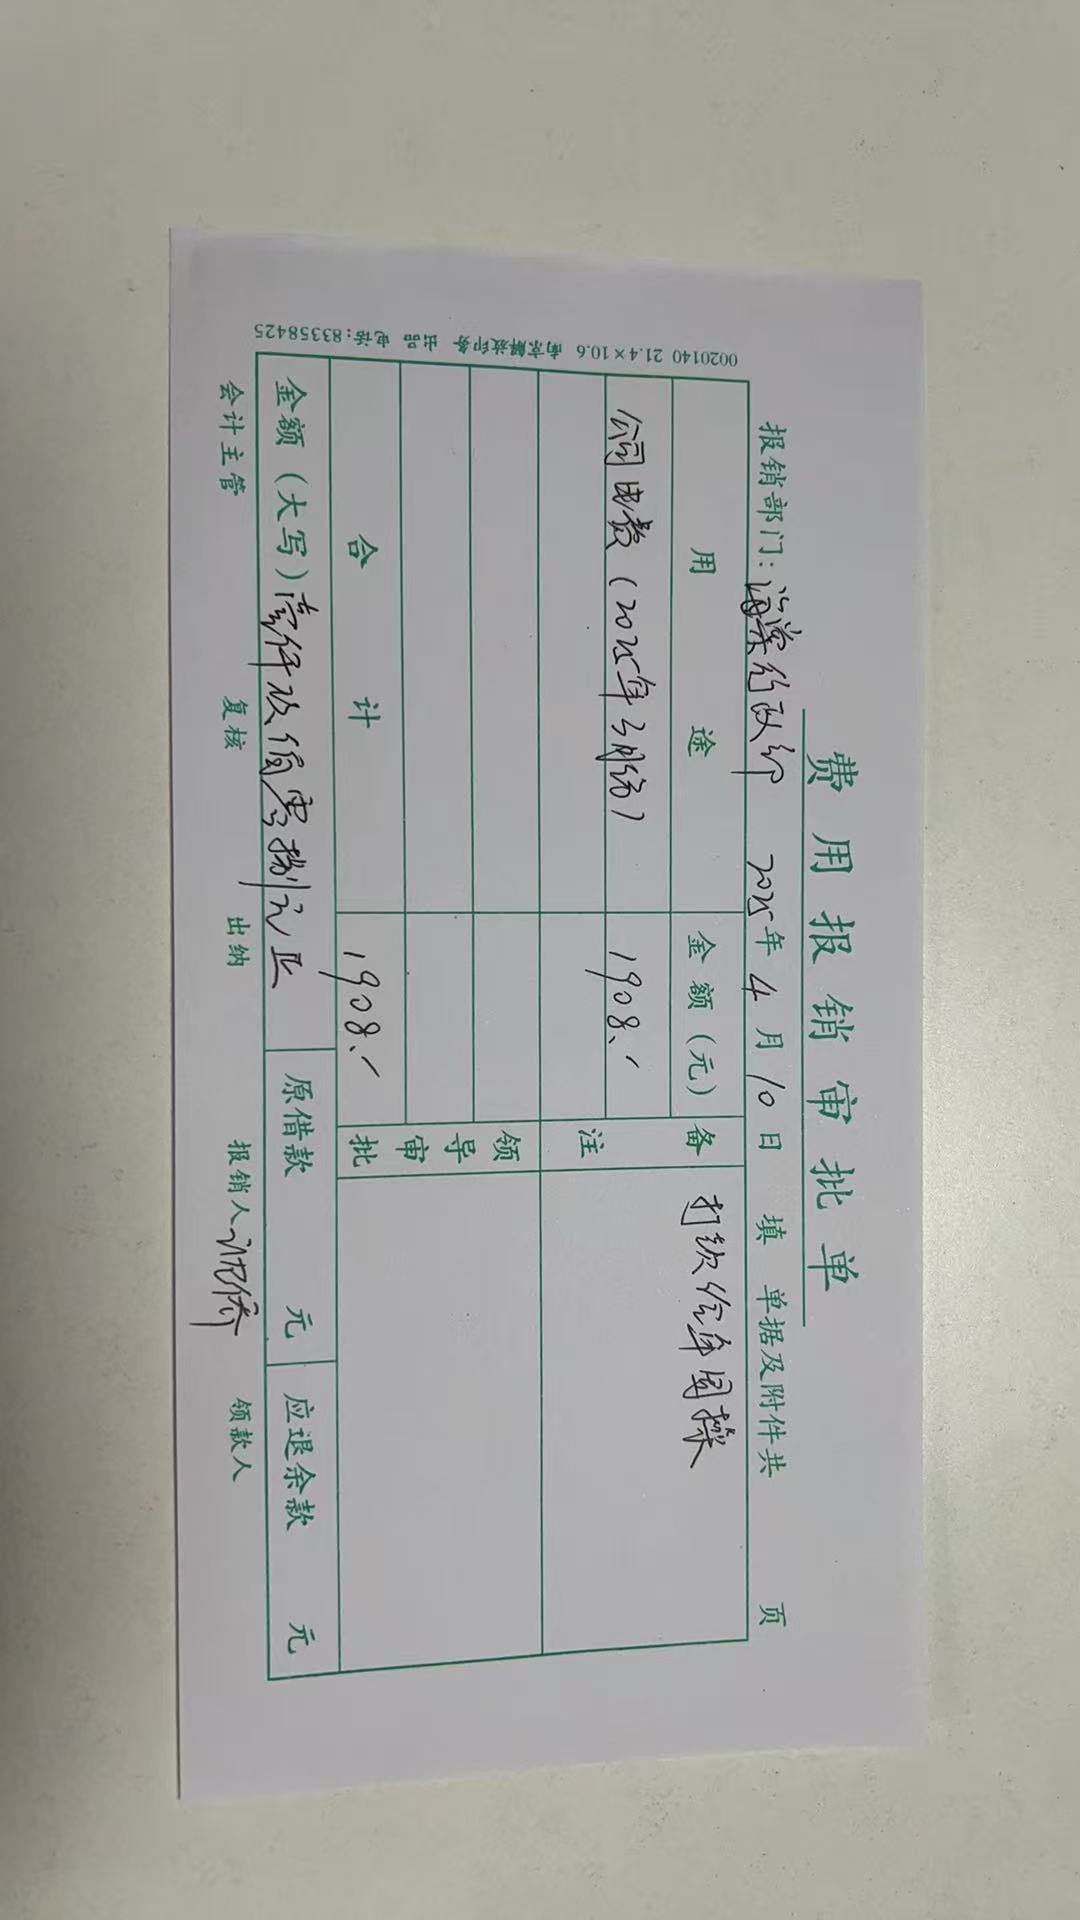 费用报销审批单
报销部门：海棠行政部 2025年4月10日填 单据及附件共 页
用途 金额（元） 备注 打款给单国樑
公司电费（2025年3月份） 1908.
领导审批
合计 1908.
金额（大写）壹仟玖佰零捌元正 原借款 元 应退余款 元
会计主管 复核 出纳 报销人 领款人
0020140 21.4×10.6 南京解放印务 出品 电话：83358425